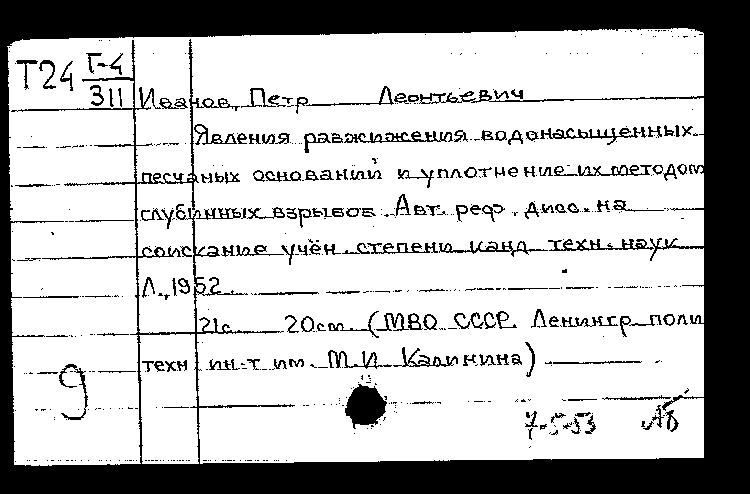 Т24 Г-4
311 Иванов, Петр Леонтьевич
Явления разжижения водонасыщенных
песчаных оснований и уплотнение их методом
глубинных взрывов. Авт. реф. дисс. на
соискание учён. степени канд. техн. наук
Л., 1952.
21с. 20см. (МВО СССР. Ленингр поли
техн ин-т им. М.И Калинина)
9
7-5-53 АБ